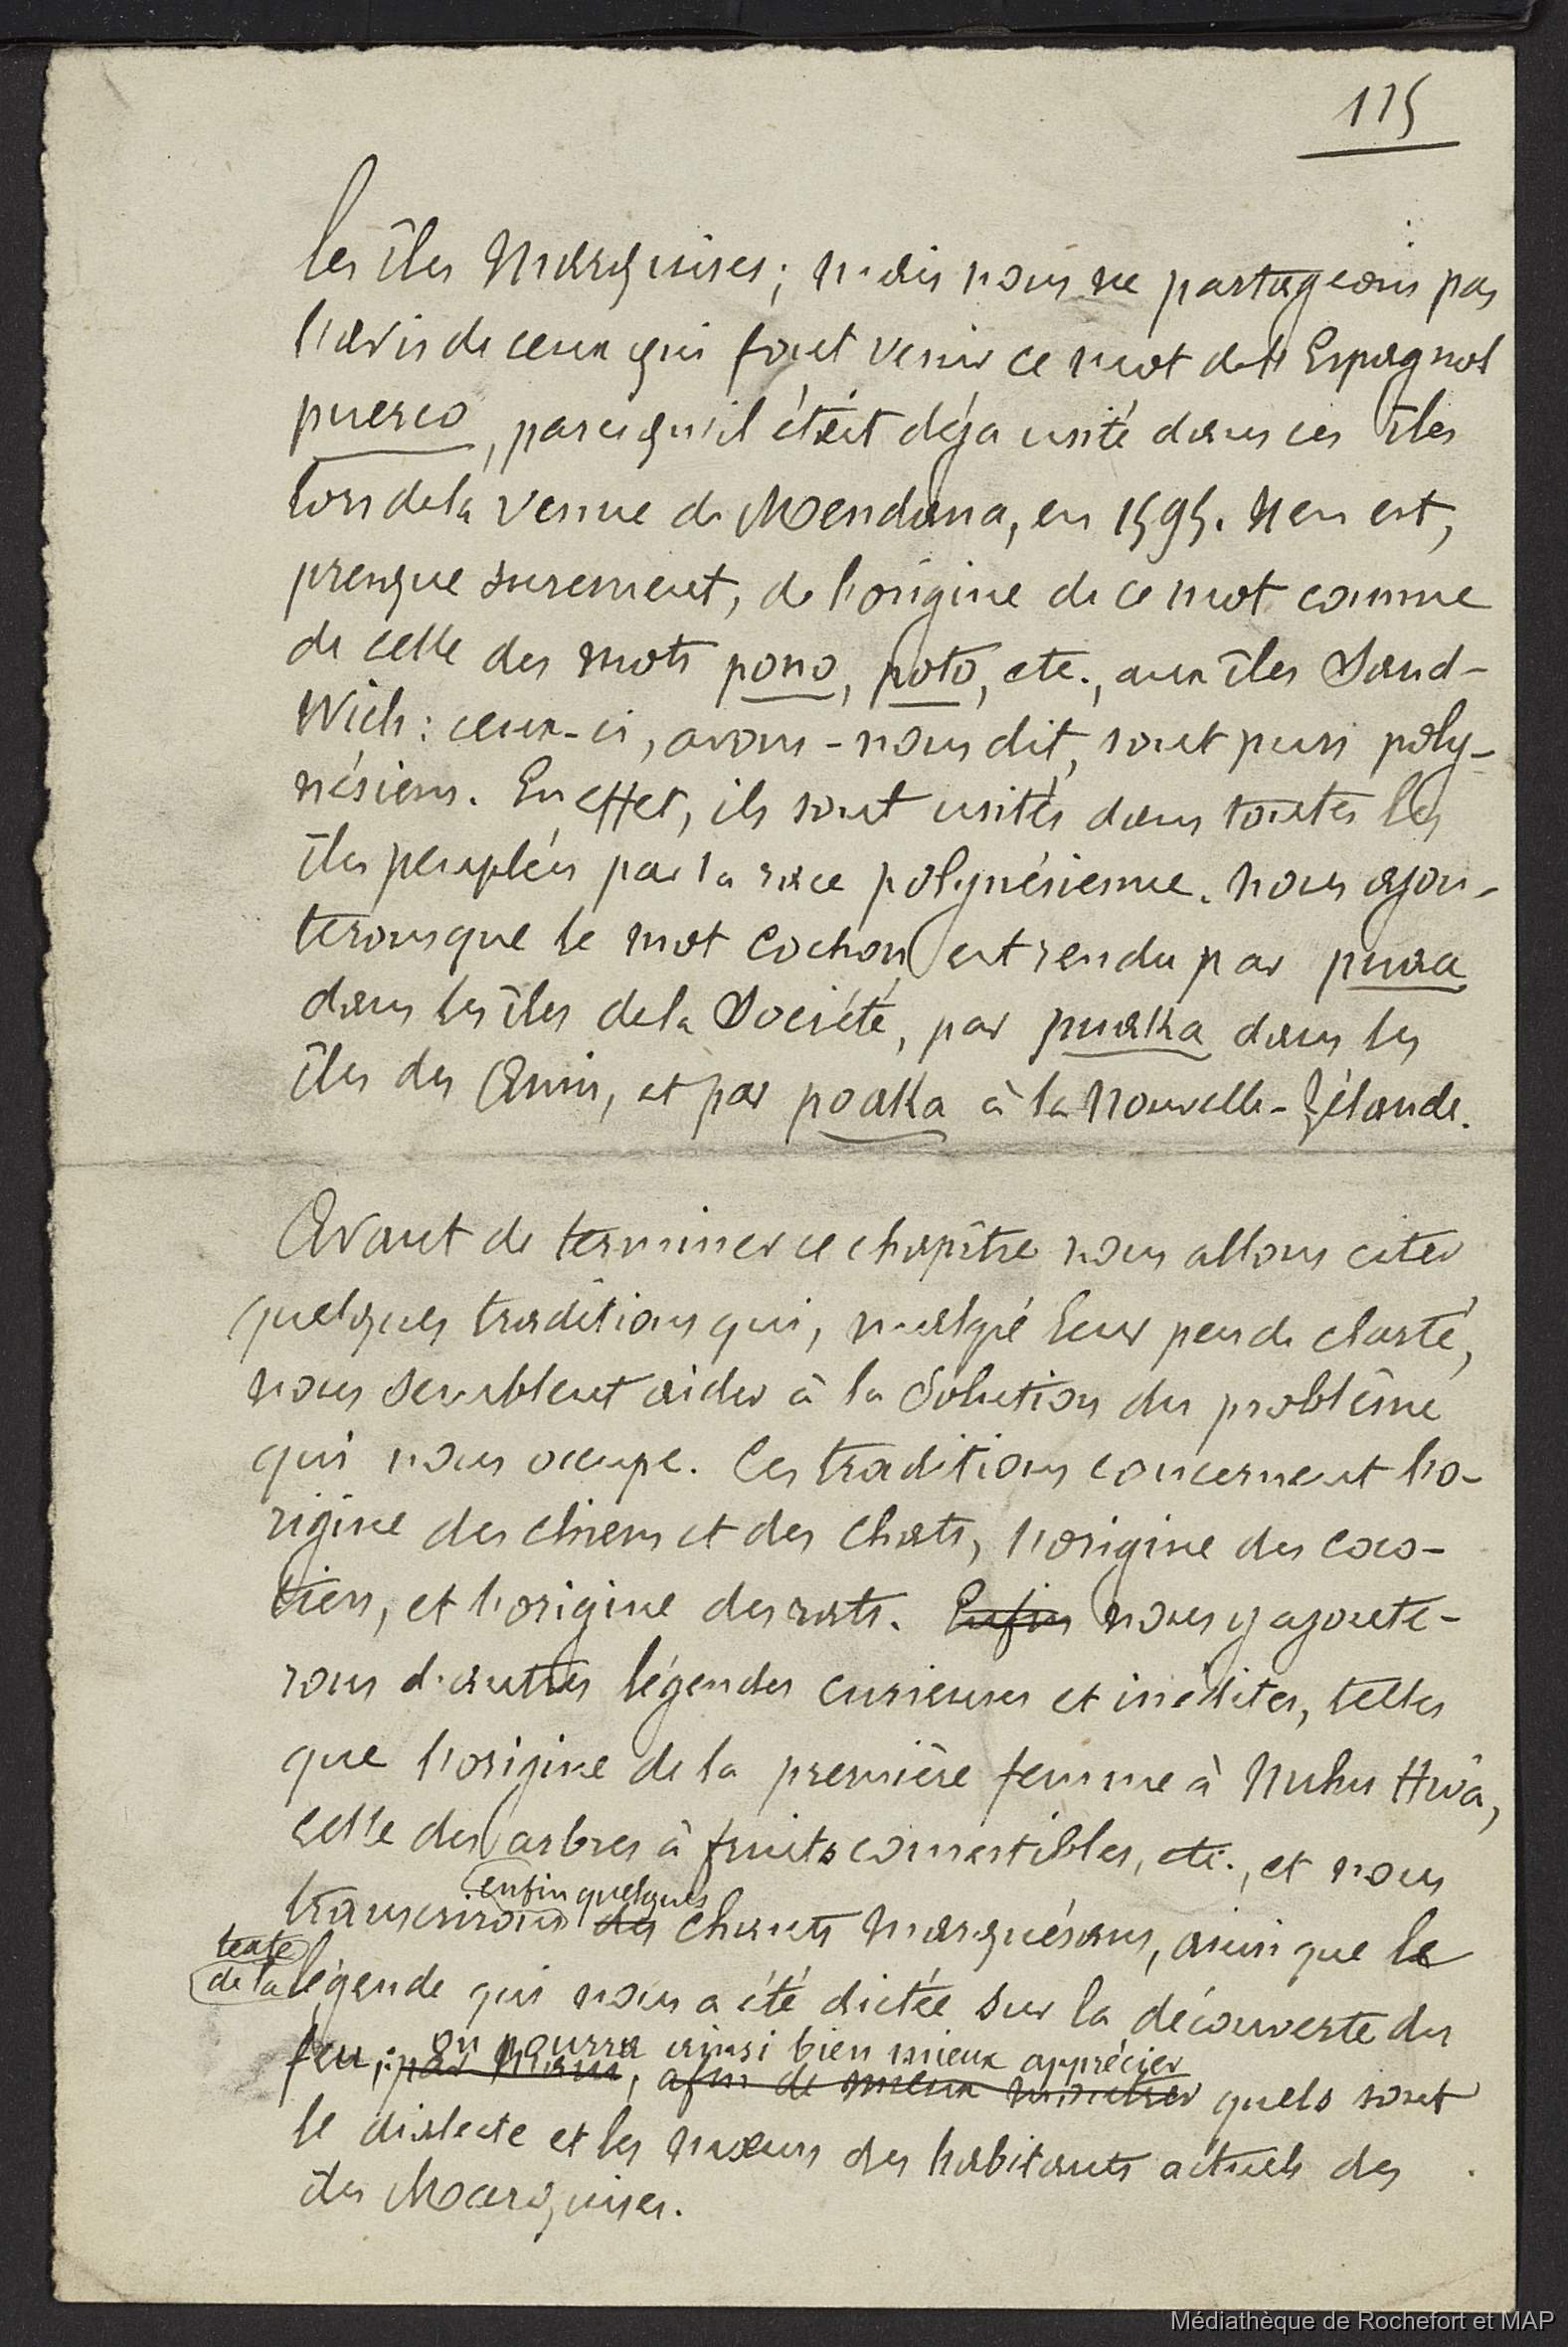 115
les îles Marquises; mais nous ne partageons pas
l'avis de ceux qui font venir ce mot de l'Espagnol
puerco, parcequ'il était déjà usité dans ces îles
lors de la venue de Mendana, en 1595. Il en est,
presque surement, de l'origine de ce mot comme
de celle des mots pono, poto, etc., aux îles Sand-
wich: ceux-ci, avons-nous dit, sont purs poly-
nésiens. En effet, ils sont usités dans toutes les
îles peuplées par la race polynésienne. Nous ajou-
terons que le mot Cochon est rendu par puaa
dans les îles de la Société, par puaka dans les
îles des Amis, et par poaka à la Nouvelle-Zélande.
Avant de terminer ce chapître nous allons citer
quelques traditions qui, malgré leur peu de clarté,
nous semblent aider à la solution du problême
qui nous occupe. Ces traditions concernent l'o-
rigine des chiens et des chats, l'origine des coco-
tiers, et l'origine des rats. Enfin nous y ajoute-
rons d'autres légendes curieuses et inédites, telles
que l'origine de la première femme à Nuhu Hiva,
celle des arbres à fruits comestibles, etc., et nous
enfin quelques
transcrirons des chants marquésans, ainsi que le
texte
de la légende qui nous a été dictée sur la découverte du
on pourra ainsi bien mieux apprécier
feu; par, afin de mieux montrer quels sont
le dialecte et les mœurs des habitants actuels des
îles Marquises.
Médiathèque de Rochefort et MAP